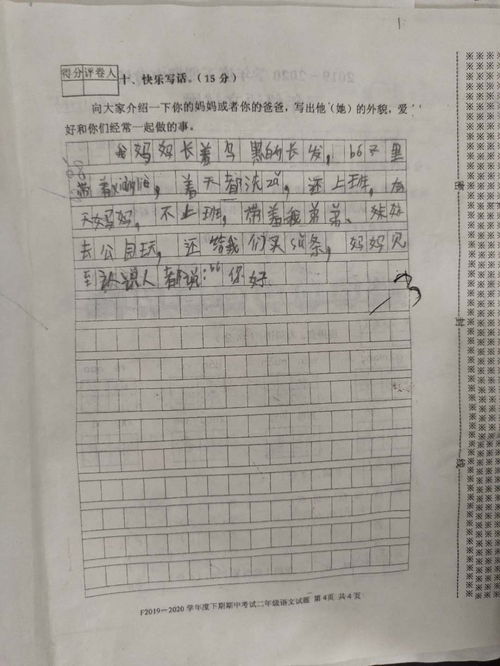 得分 评卷人
十、快乐写话。(15分)
向大家介绍一下你的妈妈或者你的爸爸，写出他（她）的外貌，爱
好和你们经常一起做的事。
妈妈长着乌黑的长发，里
带着，着天都洗，还上班，
天妈妈，不上班，带着我弟弟、妹妹
去公园玩，还给我们买条，妈妈见
到认识人都说:“你好
封
线
F2019-2020学年度下期期中考试二年级语文试题 第4页 共4页